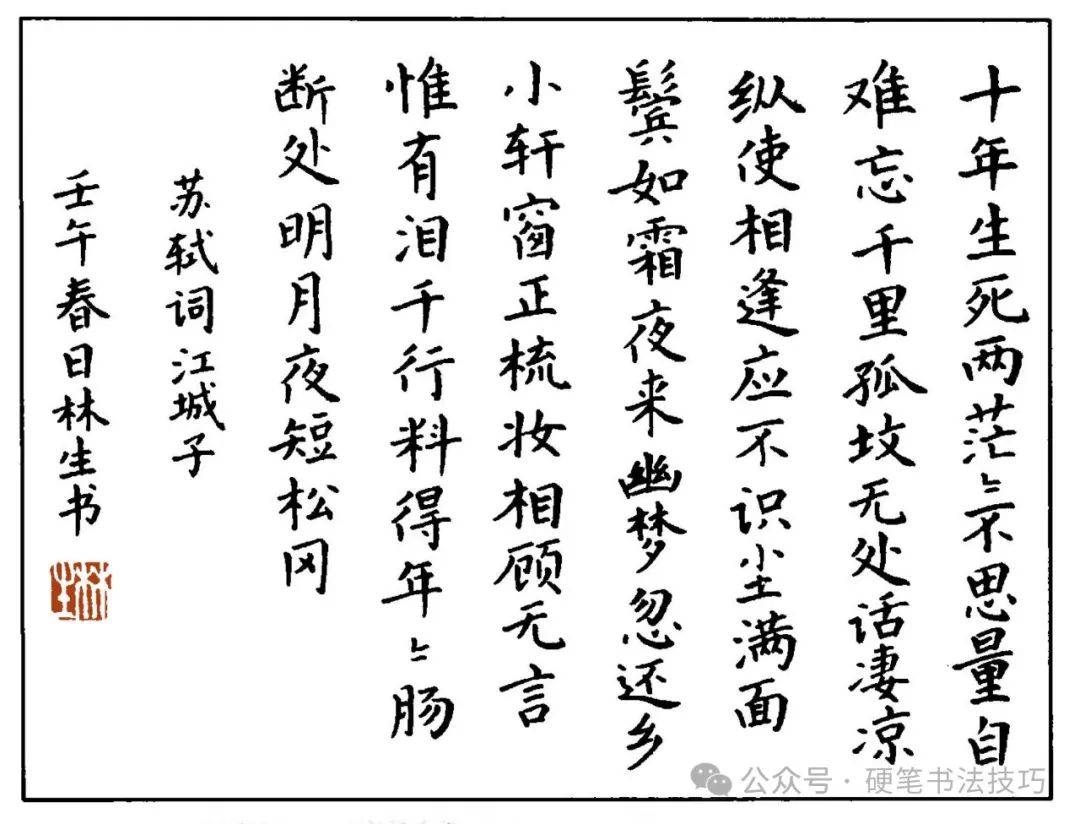 十年生死两茫〻不思量自
难忘千里孤坟无处话凄凉
纵使相逢应不识尘满面
鬓如霜夜来幽梦忽还乡
小轩窗正梳妆相顾无言
惟有泪千行料得年〻肠
断处明月夜短松冈
苏轼词江城子
壬午春日林生书
林生
公众号·硬笔书法技巧